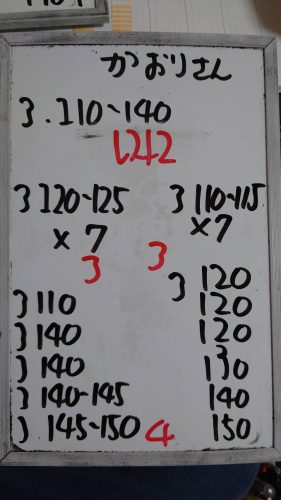 かおりさん
3.110~140
1242
3 120~125
× 7
3
3 110~115
× 7
3
3 110
3 140
3 140
3 140~145
3 145~150
4
3 120
120
120
130
140
150